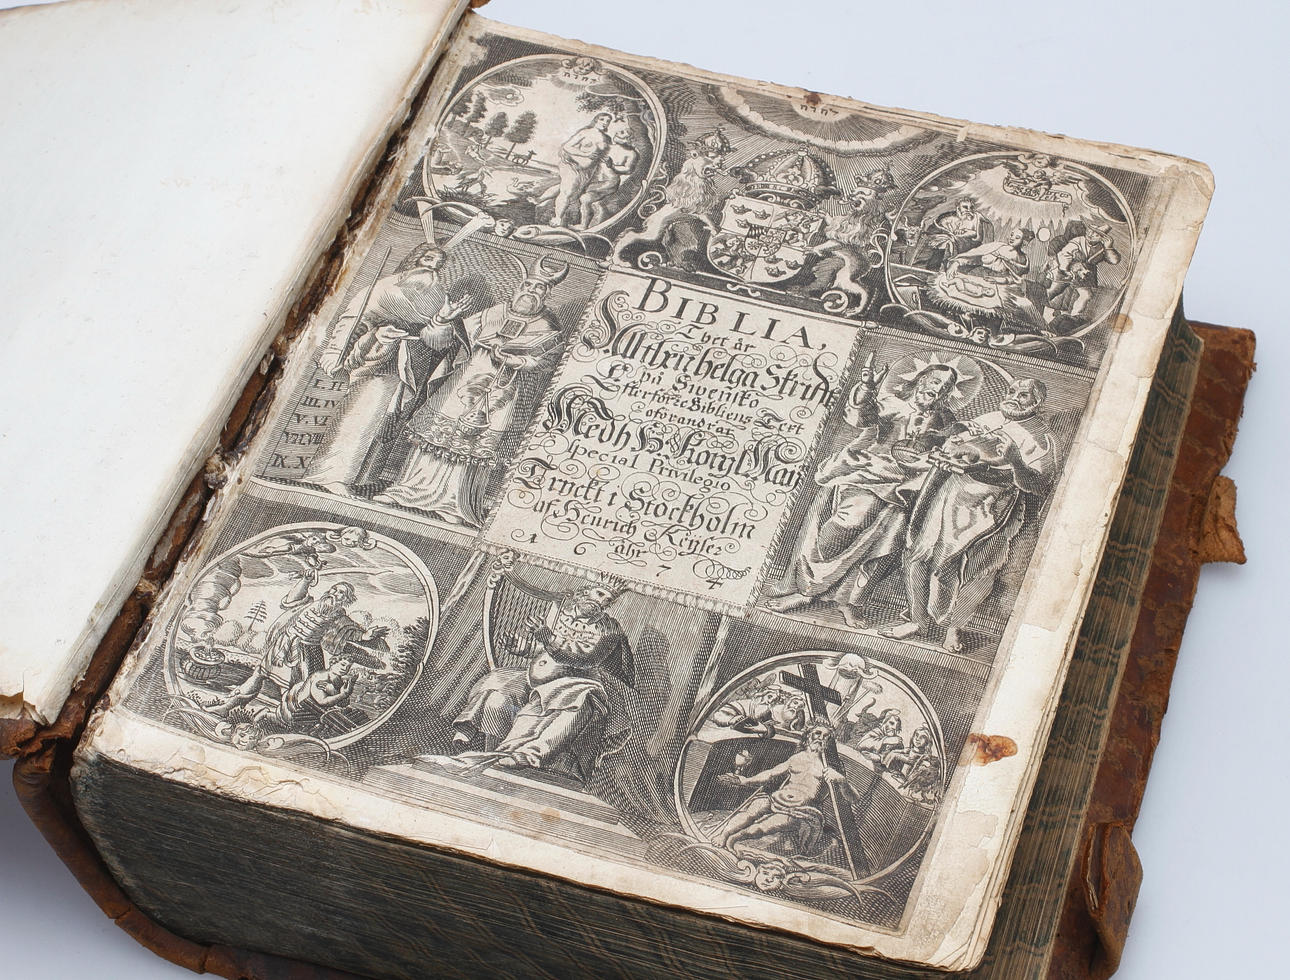 יהוה
יהוה
BIBLIA,
Thet är
All then helga Skrifft
på Swensko
Effter förre Bibliens Text
oförandrat
Medh Kongl. May
Special Privilegio
Tryckt i Stockholm
af Henrich Keyser
åhr
1 6 7 4
I. II.
III. IV
V. VI
VII. VIII
IX. X